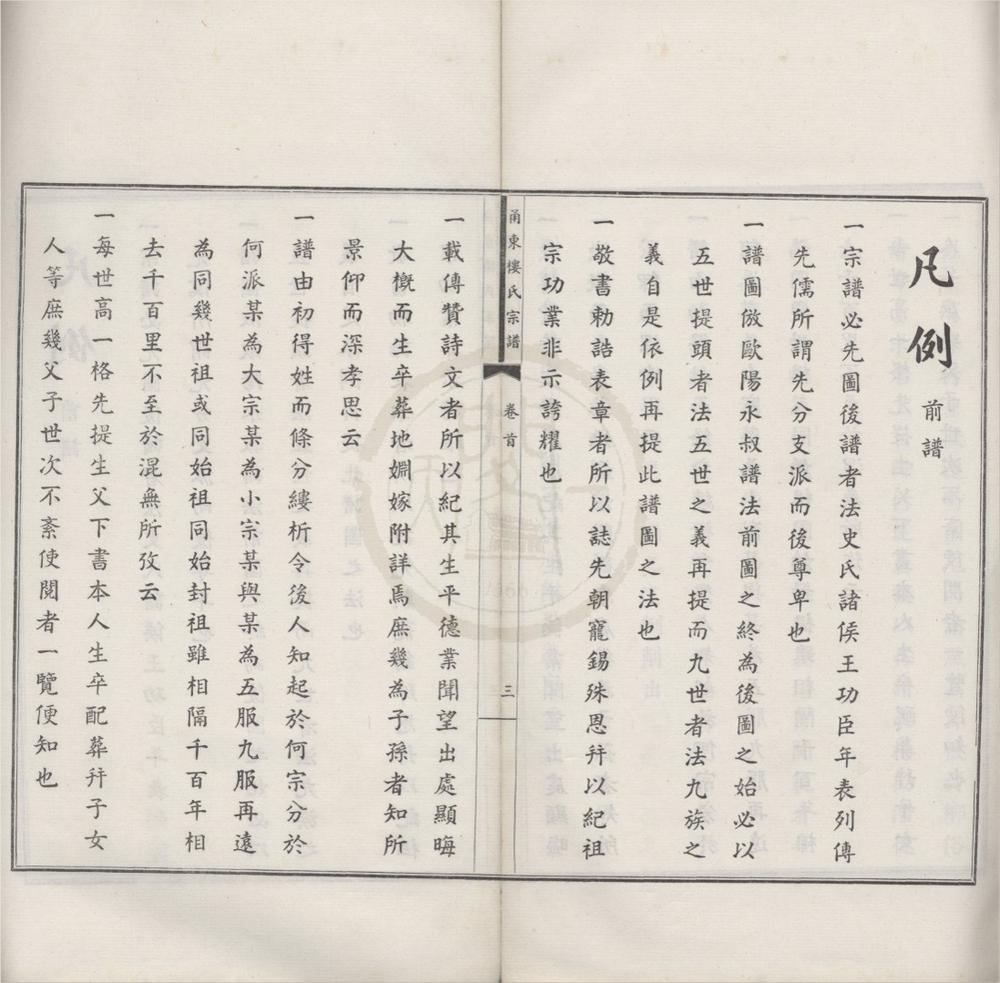 凡例
前譜
一宗譜必先圖後譜者法史氏諸侯王功臣年表列傳
先儒所謂先分支派而後尊卑也
一譜圖倣歐陽永叔譜法前圖之終為後圖之始必以
五世提頭者法五世之義再提而九世者法九族之
義自是依例再提此譜圖之法也
一敬書勅誥表章者所以誌先朝寵錫殊恩幷以紀祖
宗功業非示誇耀也
甬東樓氏宗譜
卷首
三
一載傳贊詩文者所以紀其生平德業聞望出處顯晦
大槪而生卒葬地婣嫁附詳焉庶幾為子孫者知所
景仰而深孝思云
一譜由初得姓而條分縷析令後人知起於何宗分於
何派某為大宗某為小宗某與某為五服九服再遠
為同幾世祖或同始祖同始封祖雖相隔千百年相
去千百里不至於混無所攷云
一每世高一格先提生父下書本人生卒配葬幷子女
人等庶幾父子世次不紊使閱者一覽便知也